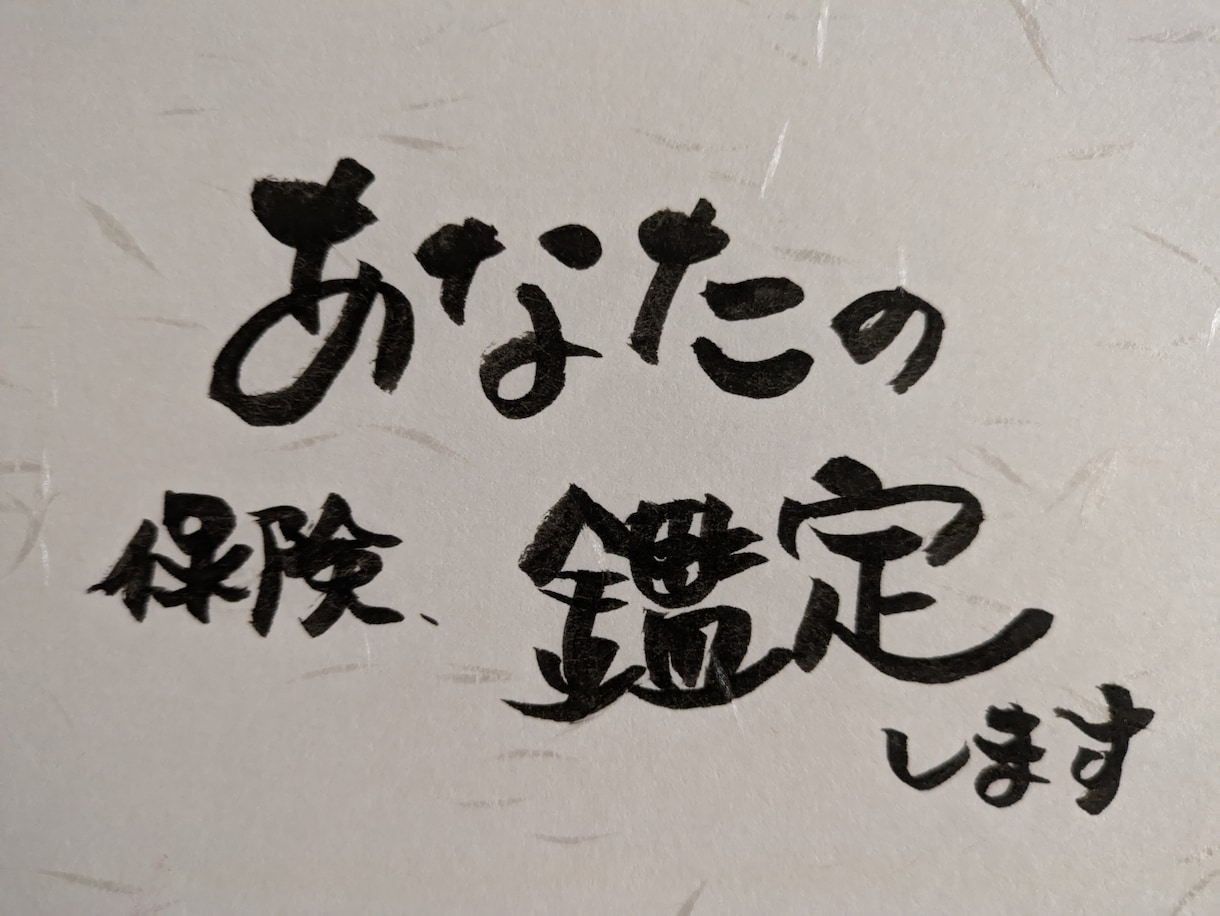 あなたの
保険、鑑定
します